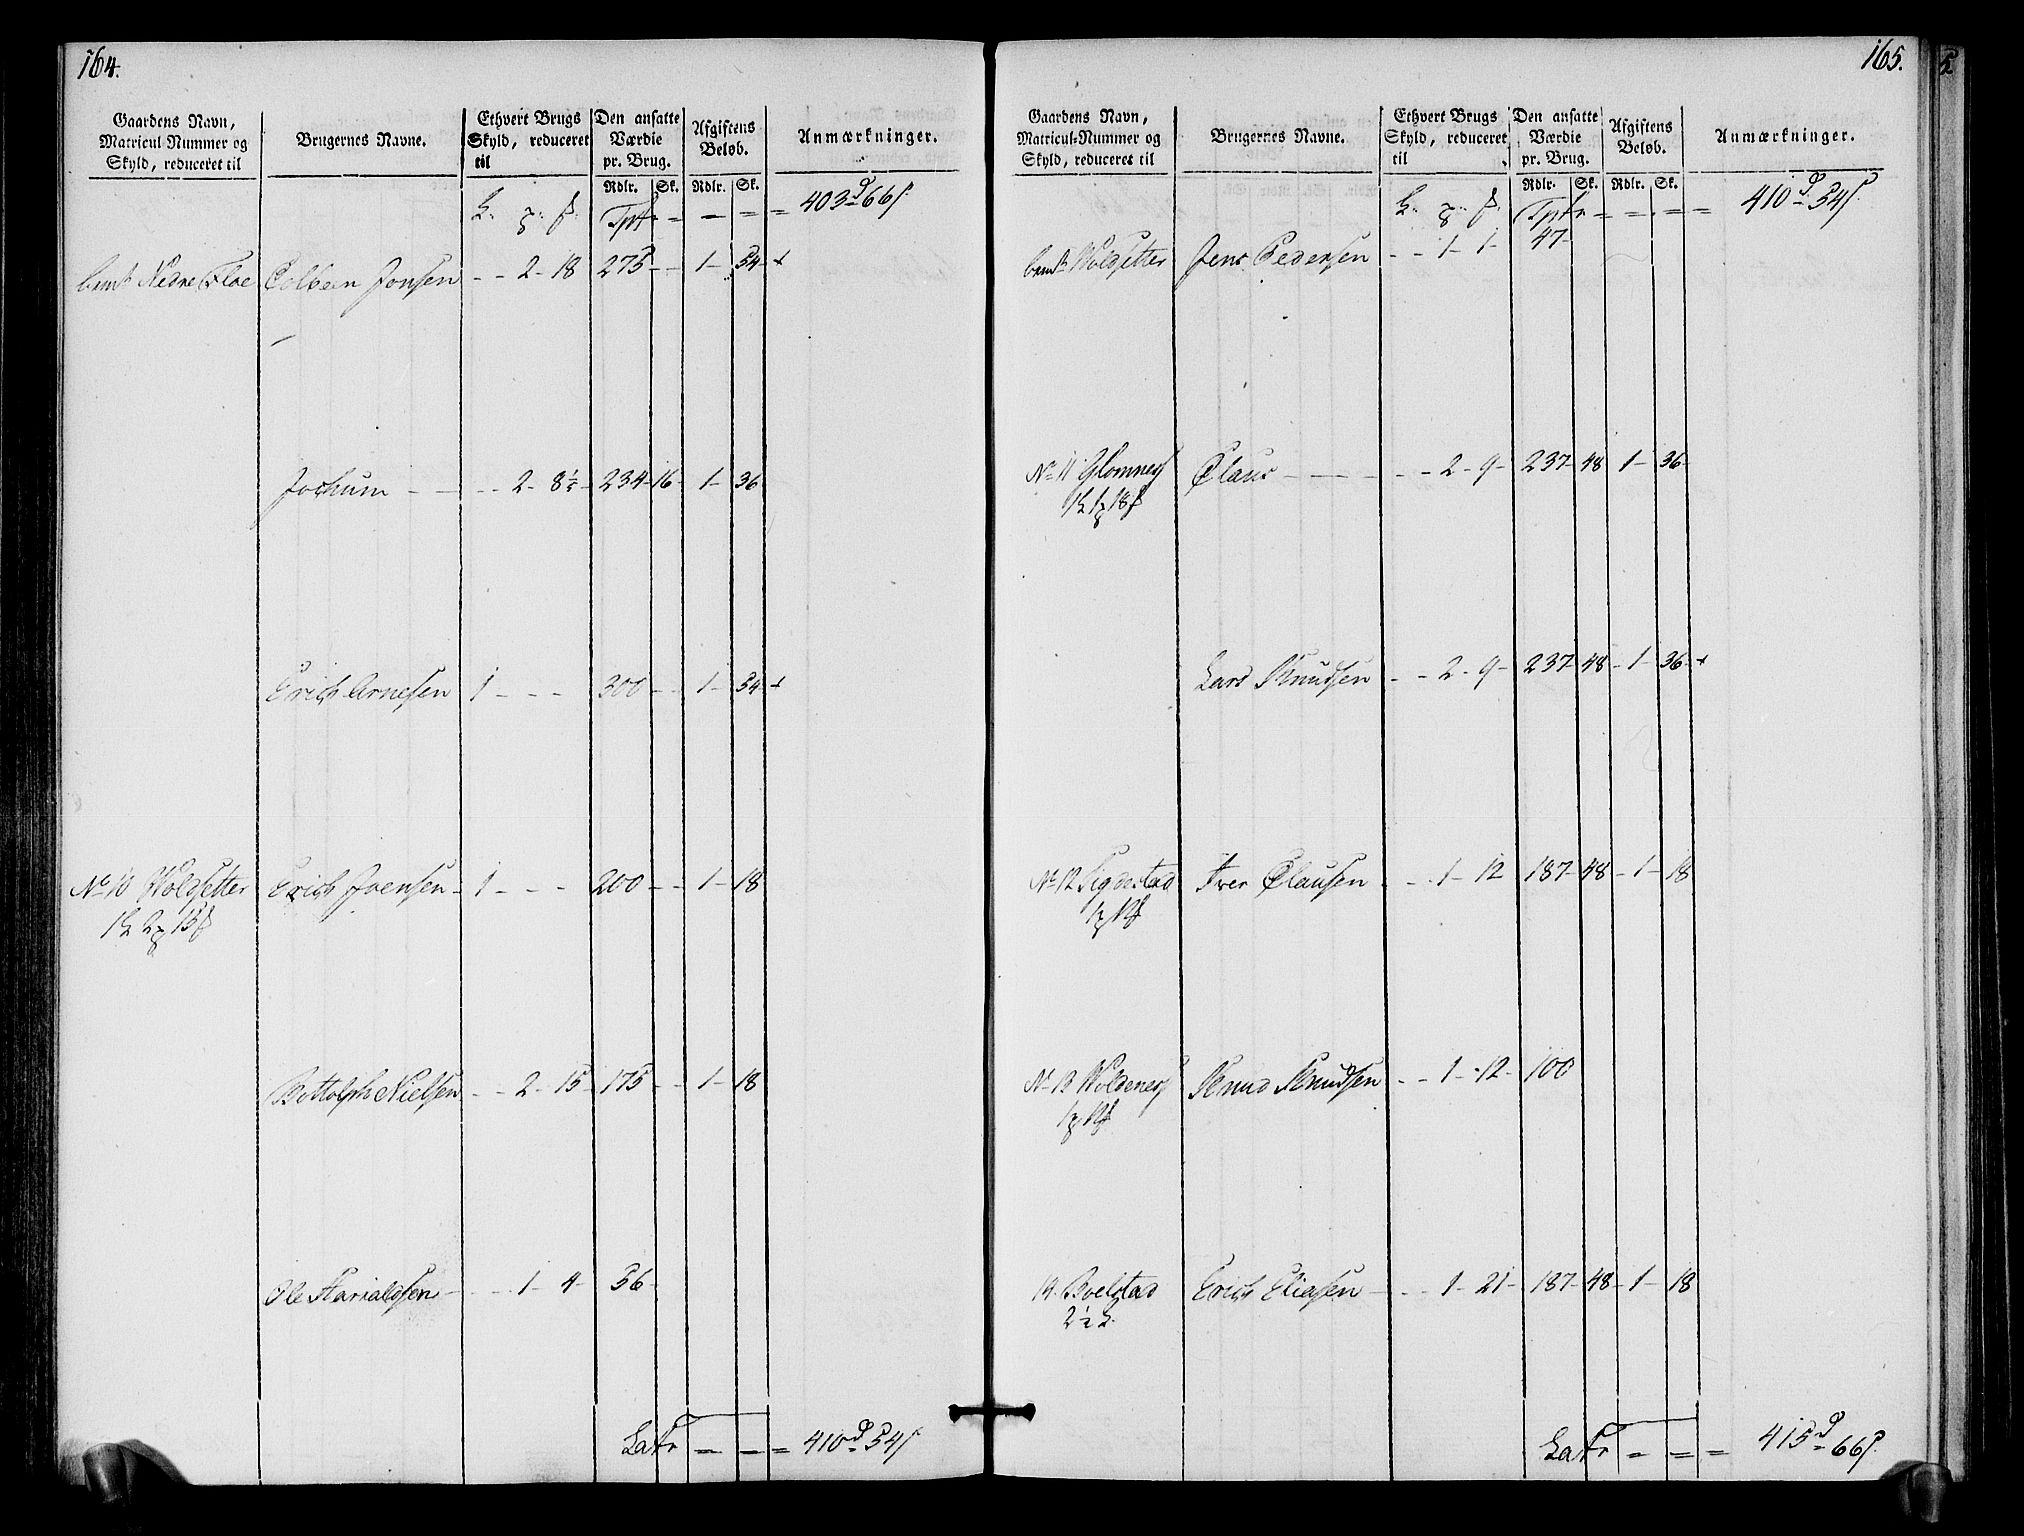 164.
Gaardens Navn, Matricul-Nummer og Skyld, reduceret til
Brugernes Navne.
Ethvert Brugs Skyld, reduceret til
Den ansatte Værdie pr. Brug.
Afgiftens Beløb.
Anmærkninger.
Rdlr. Sk. Rdlr. Sk.
Tpt = = = = = 403 d 66 s.
Nedre Floe Colbeen Jonsen - - 2 - 18 275 - - 1 - 54 +
Jochum - - - - 2 - 8½ - 234 - 16 - 1 - 36
Erich Arnesen 1 - - - 300 - - 1 - 54 +
No 10 Woldsetter Erich Joensen - 1 - - - 200 - - 1 - 18
Bottolph Nielsen - - 2 - 15 - 175 - - 1 - 18
Ole Harialdsen - - - 1 - 4 - 56 -
Latr = = = 410 d 54 s
165.
Gaardens Navn, Matricul-Nummer og Skyld, reduceret til
Brugernes Navne.
Ethvert Brugs Skyld, reduceret til
Den ansatte Værdie pr. Brug.
Afgiftens Beløb.
Anmærkninger.
Rdlr. Sk. Rdlr. Sk.
Tptr = = = = = 410 d 54 s.
Woldsetter Jens Pedersen - - 1 - 1 - 47 -
No 11 Glomnes Claus - - - - - 2 - 9 - 237 - 48 - 1 - 36 -
Lars Knudsen - - 2 - 9 - 237 - 48 - 1 - 36 - +
No 12 Sigdestad Iver Clausen - - 1 - 12 187 - 48 - 1 - 18
No 13 Woldenes Knud Knudsen - - 1 - 12 - 100
14. Boelstad Erich Eliasen - - - 1 - 21 - 187 - 48 - 1 - 18
Latr = = = 415 d 66 s.